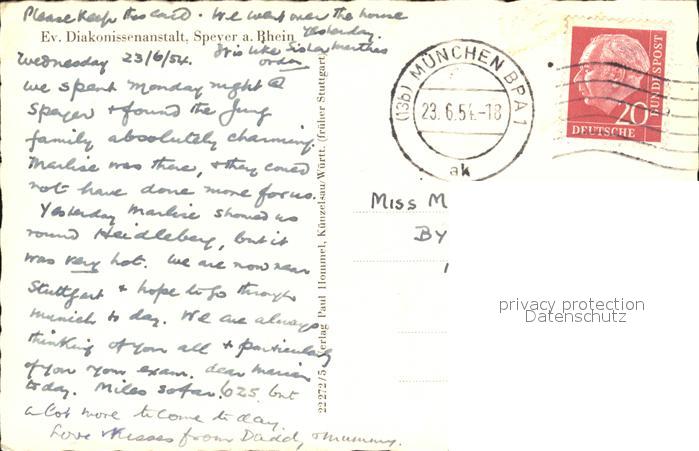 Please keep this card. We went over the house
Yesterday.
Ev. Diakonissenanstalt, Speyer a. Rhein
It is like Sister Marthas
order
Wednesday 23/6/54.
We spent Monday night @
Speyer & found the Jung
family absolutely charming.
Marlise was there, & they could
not have done more for us.
Yesterday Marlise showed us
round Heidleberg, but it
was very hot. We are now near
Stuttgart & hope to go through
Munich to day. We are always
thinking of you all & particularly
of you your exam. dear
to day. Miles so far 625 but
a lot more to come to day.
Love & kisses from Dadd, & mummy.
22272/5 Verlag Paul Hommel, Künzelsau/Württ. (früher Stuttgart)
(13b) MÜNCHEN BPA 1
23.6.54.-18
ak
20
DEUTSCHE
BUNDESPOST
Miss M
By
privacy protection
Datenschutz